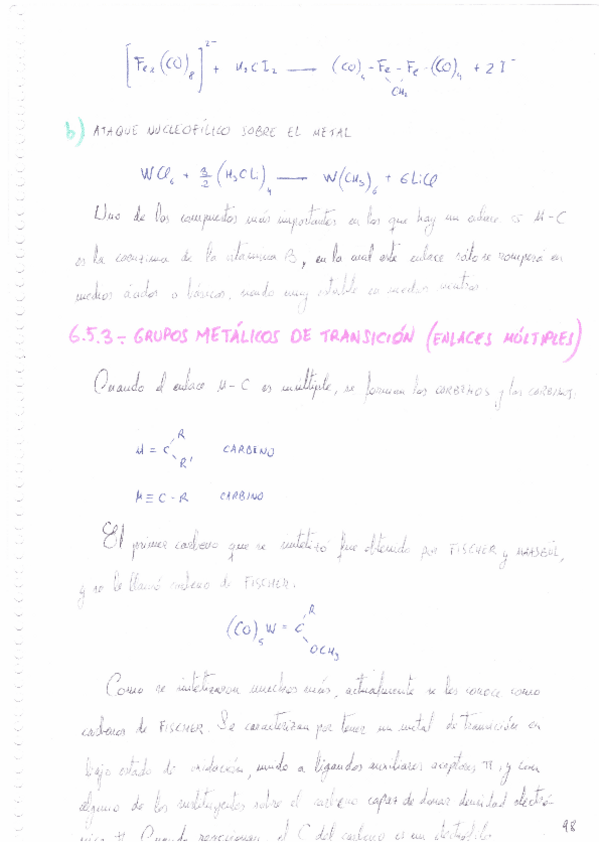 [Fe₂(CO)₈]²⁻ + H₂CI₂ — (CO)₄-Fe-Fe-(CO)₄ + 2I⁻
CH₂
b) ATAQUE NUCLEOFÍLICO SOBRE EL METAL
WCl₆ + 3/2 (H₃CLi)₄ — W(CH₃)₆ + 6LiCl
Uno de los compuestos más importantes en los que hay un enlace M-C
es la coenzima de la vitamina B, en la cual este enlace sólo se romperá en
medios ácidos o básicos, siendo muy estable en medios neutros
6.5.3.- GRUPOS METÁLICOS DE TRANSICIÓN (ENLACES MÚLTIPLES)
Cuando el enlace M-C es múltiple, se forman los CARBENOS y los
M = C
R
R'
CARBENO
M ≡ C - R CARBINO
El primer carbeno que se sintetizó fue obtenido por FISCHER y
y se le llamó carbeno de FISCHER.
(CO)₅ W = C
R
OCH₃
Como se sintetizaron muchos más, actualmente se les conoce como
carbenos de FISCHER. Se caracterizan por tener un metal de transición en
bajo estado de oxidación, unido a ligandos auxiliares aceptores π, y con
alguno de los sustituyentes sobre el carbeno capaz de donar densidad electró
nica π. Cuando reaccionan, el C del carbeno es un electrófilo
98